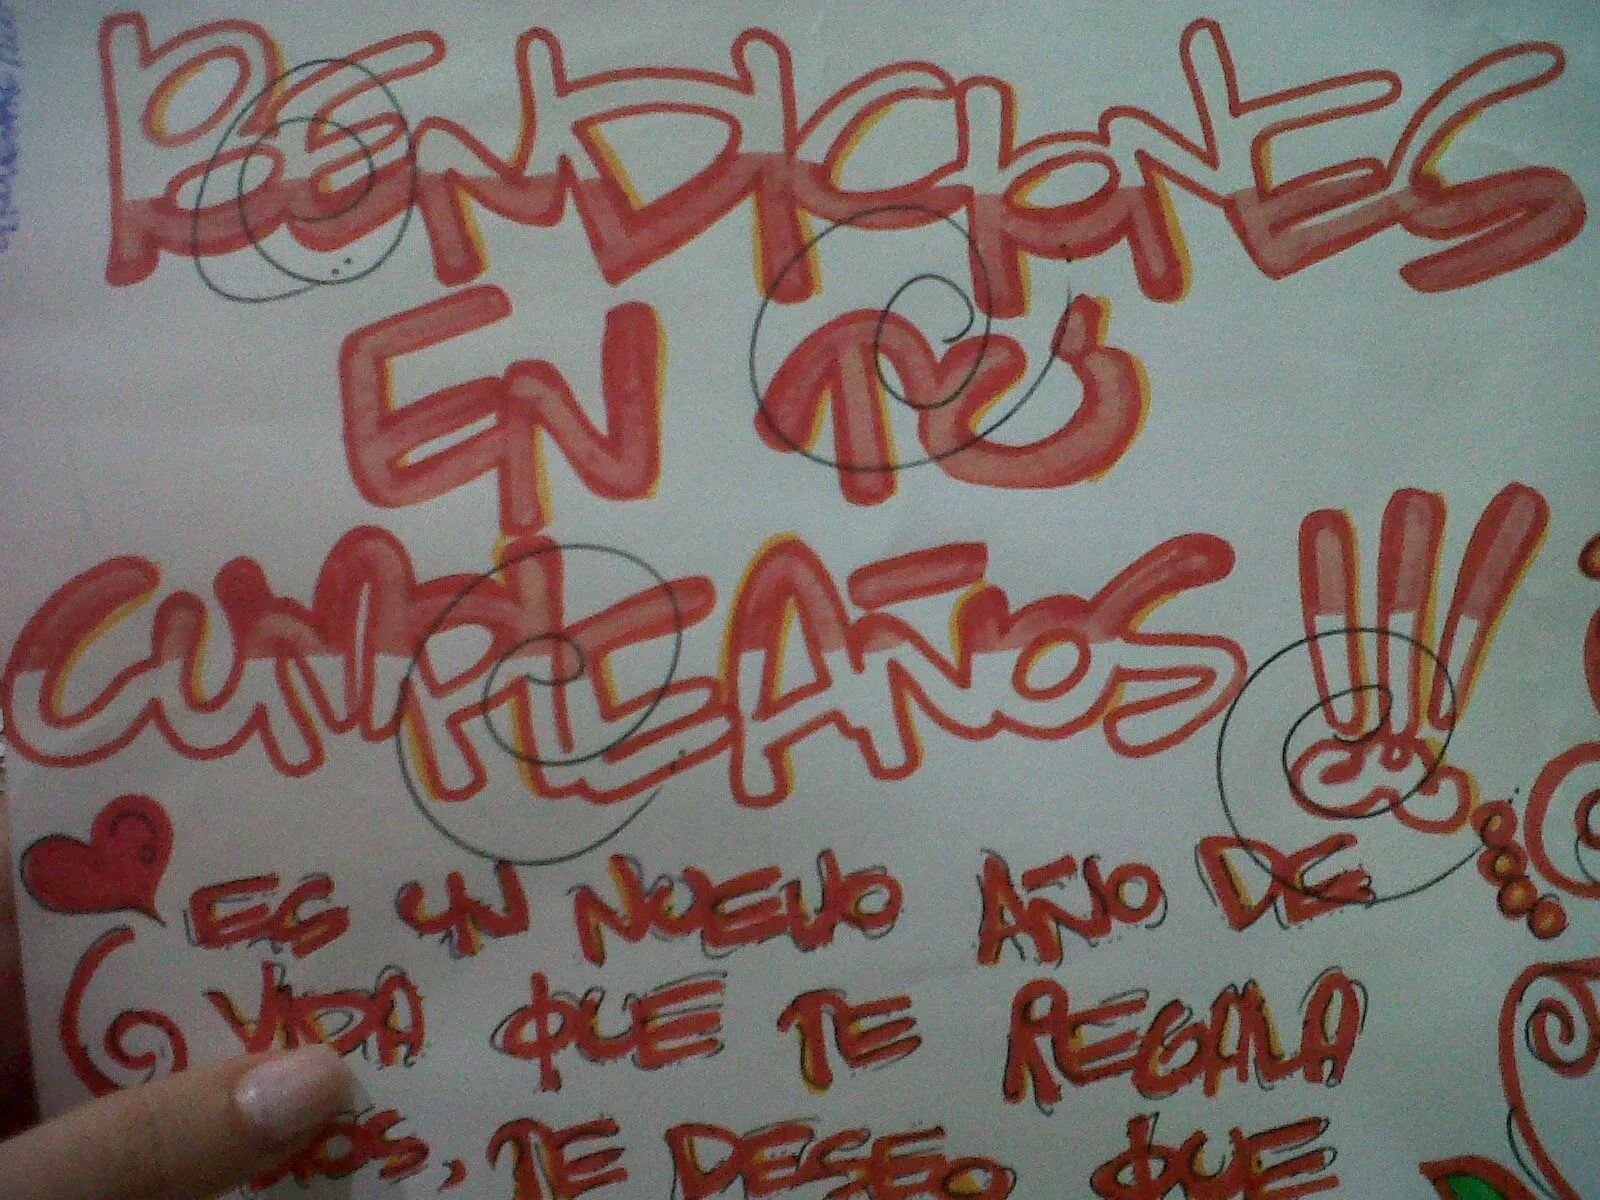 BENDICIONES
EN TÚ
CUMPLEAÑOS!!!
ES UN NUEVO AÑO DE
VIDA QUE TE REGALA
, TE DESEO QUE